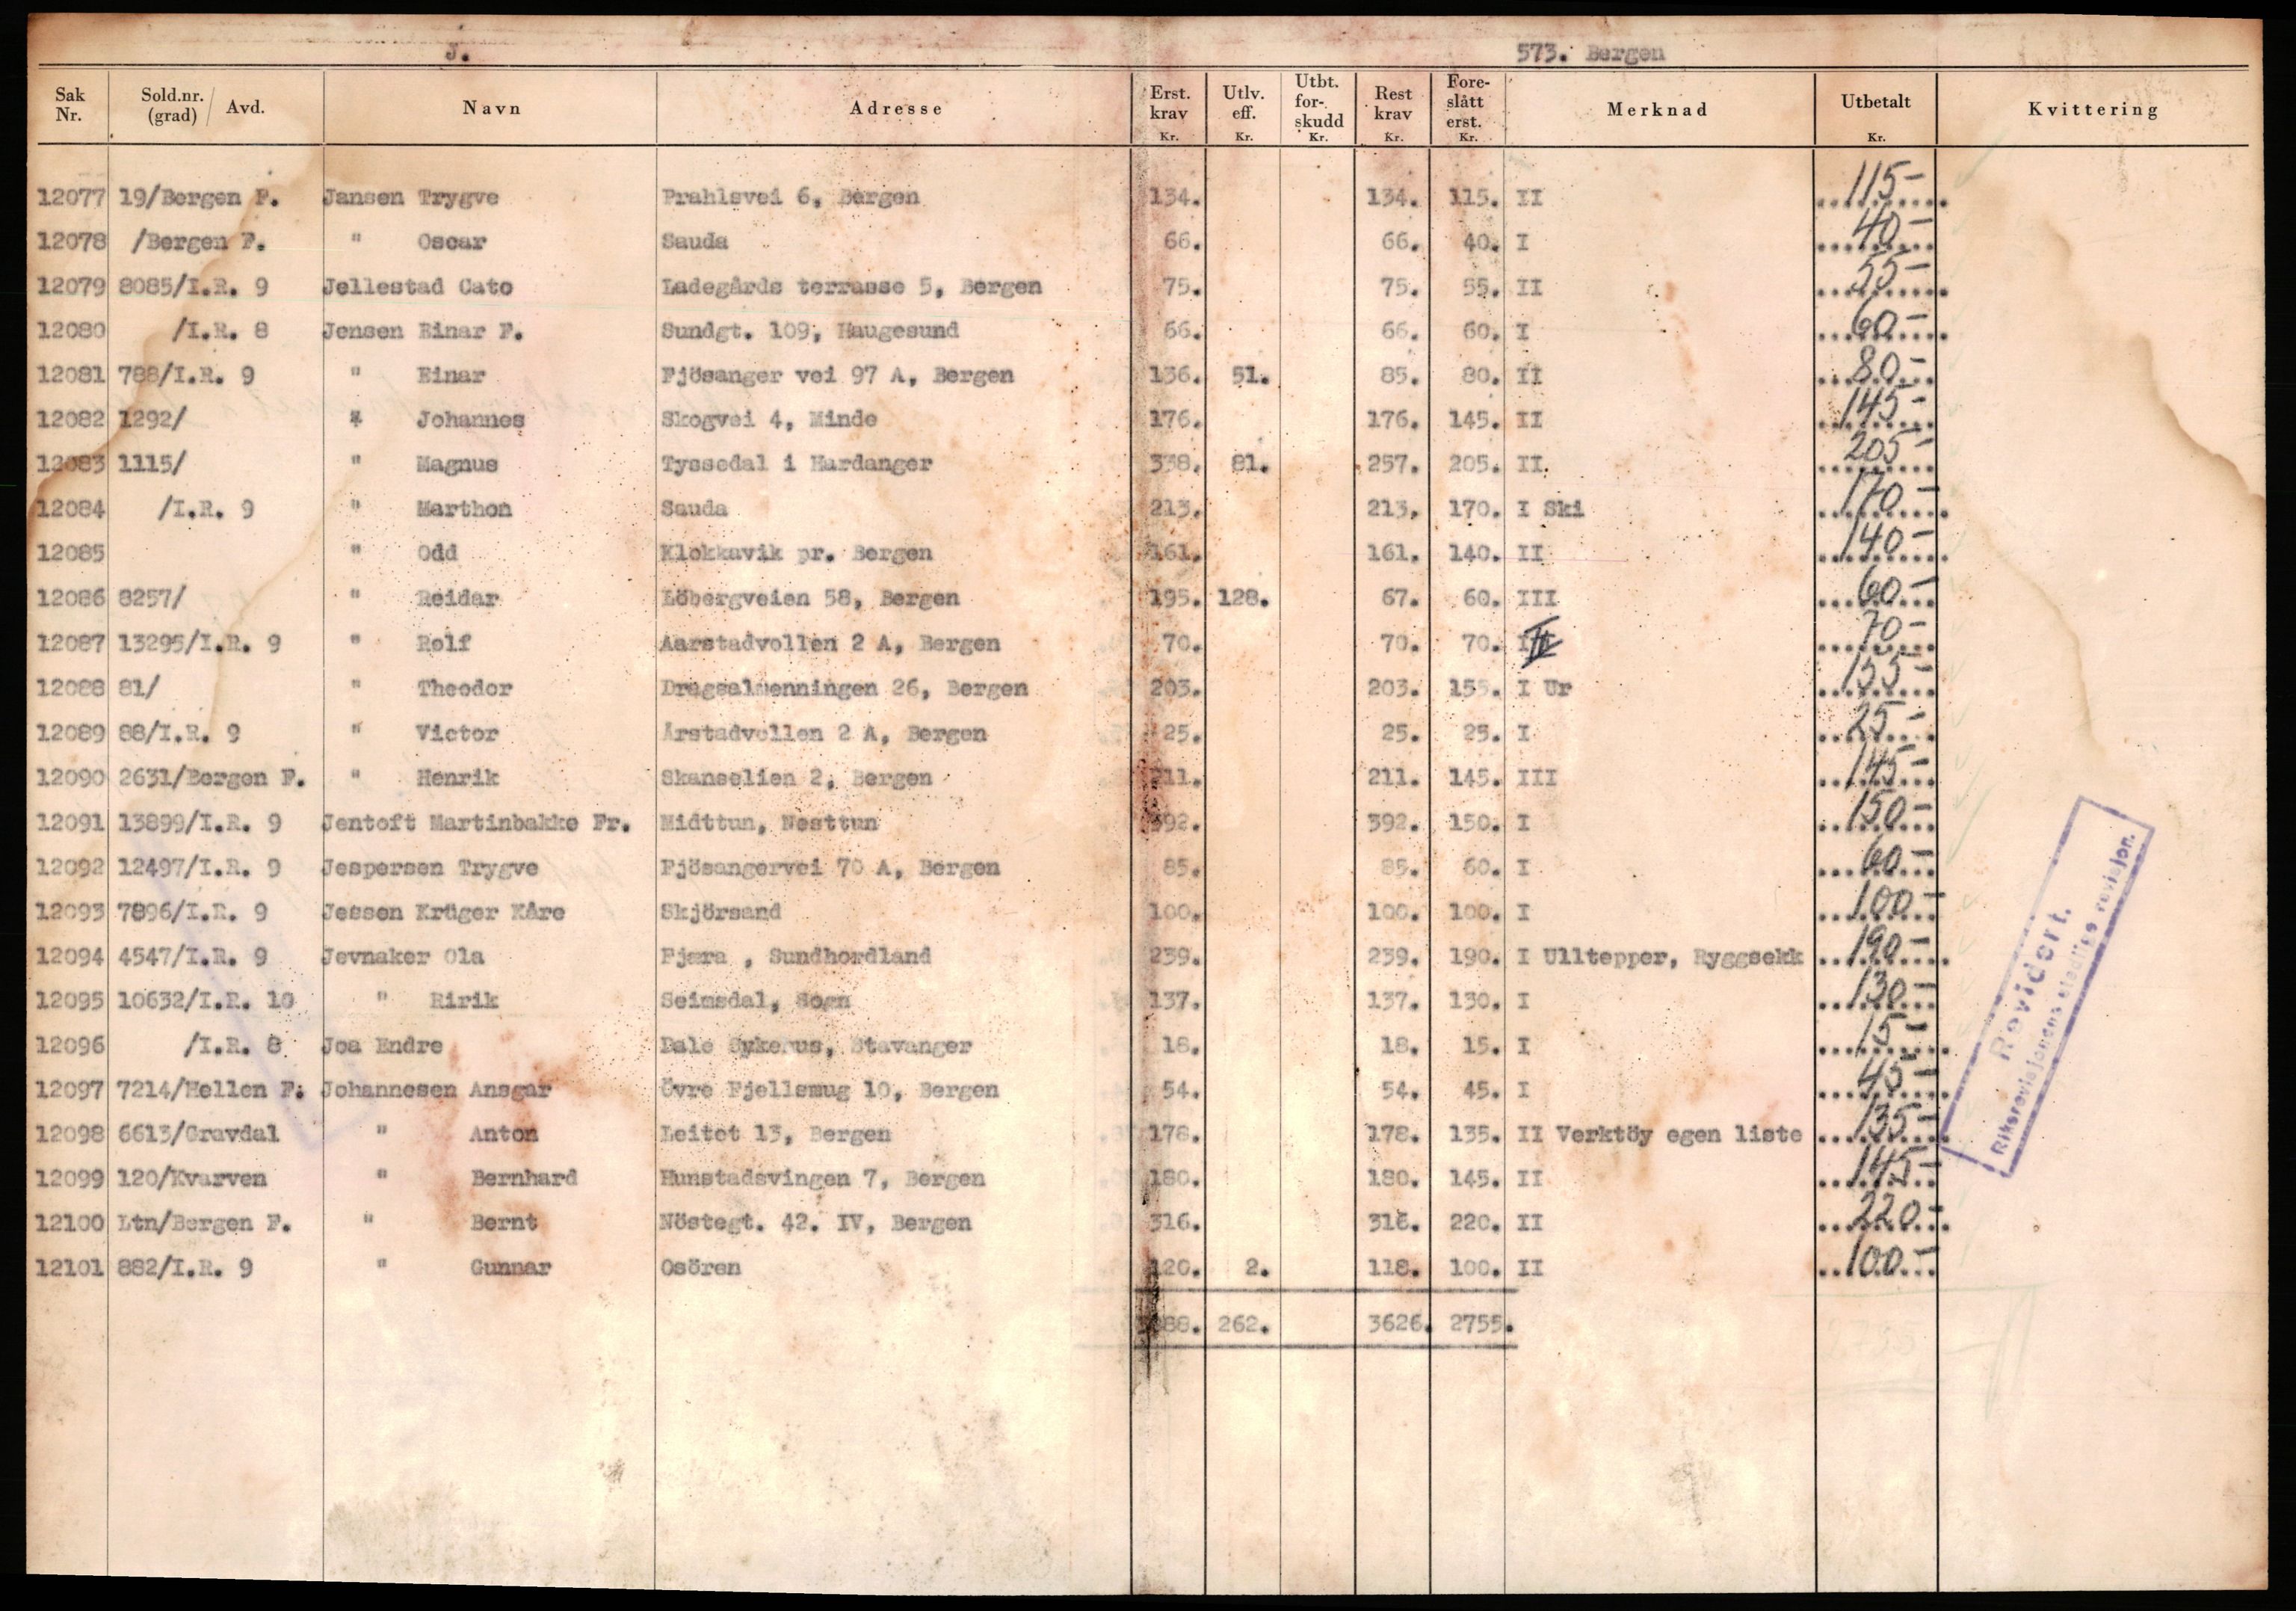 J. 573. Bergen
Sak Nr. Sold.nr. (grad) / Avd. Navn Adresse Erst. krav Kr. Utlv. eff. Kr. Utbt. for- skudd Kr. Rest krav Kr. Fore- slått erst. Kr. Merknad Utbetalt Kr. Kvittering
12077 19/Bergen F. Jansen Trygve Prahlsvei 6, Bergen 134. 134. 115. II 115-
12078 /Bergen F. " Oscar Sauda 66. 66. 40. I 40-
12079 8085/I.R. 9 Jellestad Cato Ladegårds terrasse 5, Bergen 75. 75. 55. II 55-
12080 /I.R. 8 Jensen Einar F. Sundgt. 109, Haugesund 66. 66. 60. I 60-
12081 788/I.R. 9 " Einar Fjösanger vei 97 A, Bergen 136. 51. 85. 80. II 80-
12082 1292/ " Johannes Skogvei 4, Minde 176. 176. 145. II 145-
12083 1115/ " Magnus Tyssedal i Hardanger 338. 81. 257. 205. II. 205-
12084 /I.R. 9 " Marthon Sauda 213. 213. 170. I Ski 170-
12085 " Odd Klokkavik pr. Bergen 161. 161. 140. II 140-
12086 8257/ " Reidar Löbergveien 58, Bergen 195. 128. 67. 60. III 60-
12087 13295/I.R. 9 " Rolf Aarstadvollen 2 A, Bergen 70. 70. 70. 70-
12088 81/ " Theodor Dragsalmenningen 26, Bergen 203. 203. 155. I Ur 155-
12089 88/I.R. 9 " Victor Årstadvollen 2 A, Bergen 25. 25. 25. I 25-
12090 2631/Bergen F. " Henrik Skanselien 2, Bergen 211. 211. 145. III 145-
12091 13899/I.R. 9 Jentoft Martinbakke Fr. Midttun, Nesttun 392. 392. 150. I 150-
12092 12497/I.R. 9 Jespersen Trygve Fjösangervei 70 A, Bergen 85. 85. 60. I 60-
12093 7896/I.R. 9 Jessen Krüger Kåre Skjörsand 100. 100. 100. I 100-
12094 4547/I.R. 9 Jevnaker Ola Fjæra , Sundhordland 239. 239. 190. I Ulltepper, Ryggsekk 190-
12095 10632/I.R. 10 " Eirik Seimsdal, Sogn 137. 137. 130. I 130-
12096 /I.R. 8 Joa Endre Dale Sykehus, Stavanger 18. 18. 15. I 15-
12097 7214/Hellen F. Johannesen Ansgar Övre Fjellsmug 10, Bergen 54. 54. 45. I 45-
12098 6613/Gravdal " Anton Leitet 13, Bergen 178. 178. 135. II Verktöy egen liste 135-
12099 120/Kvarven " Bernhard Hunstadsvingen 7, Bergen 180. 180. 145. II 145-
12100 Ltn/Bergen F. " Bernt Nöstegt. 42. IV, Bergen 316. 316. 220. II 220-
12101 882/I.R. 9 " Gunnar Osören 120. 2. 118. 100. II 100-
262. 3626. 2755.
Revidert.
Riksrevisjonens stedlige revisjon.